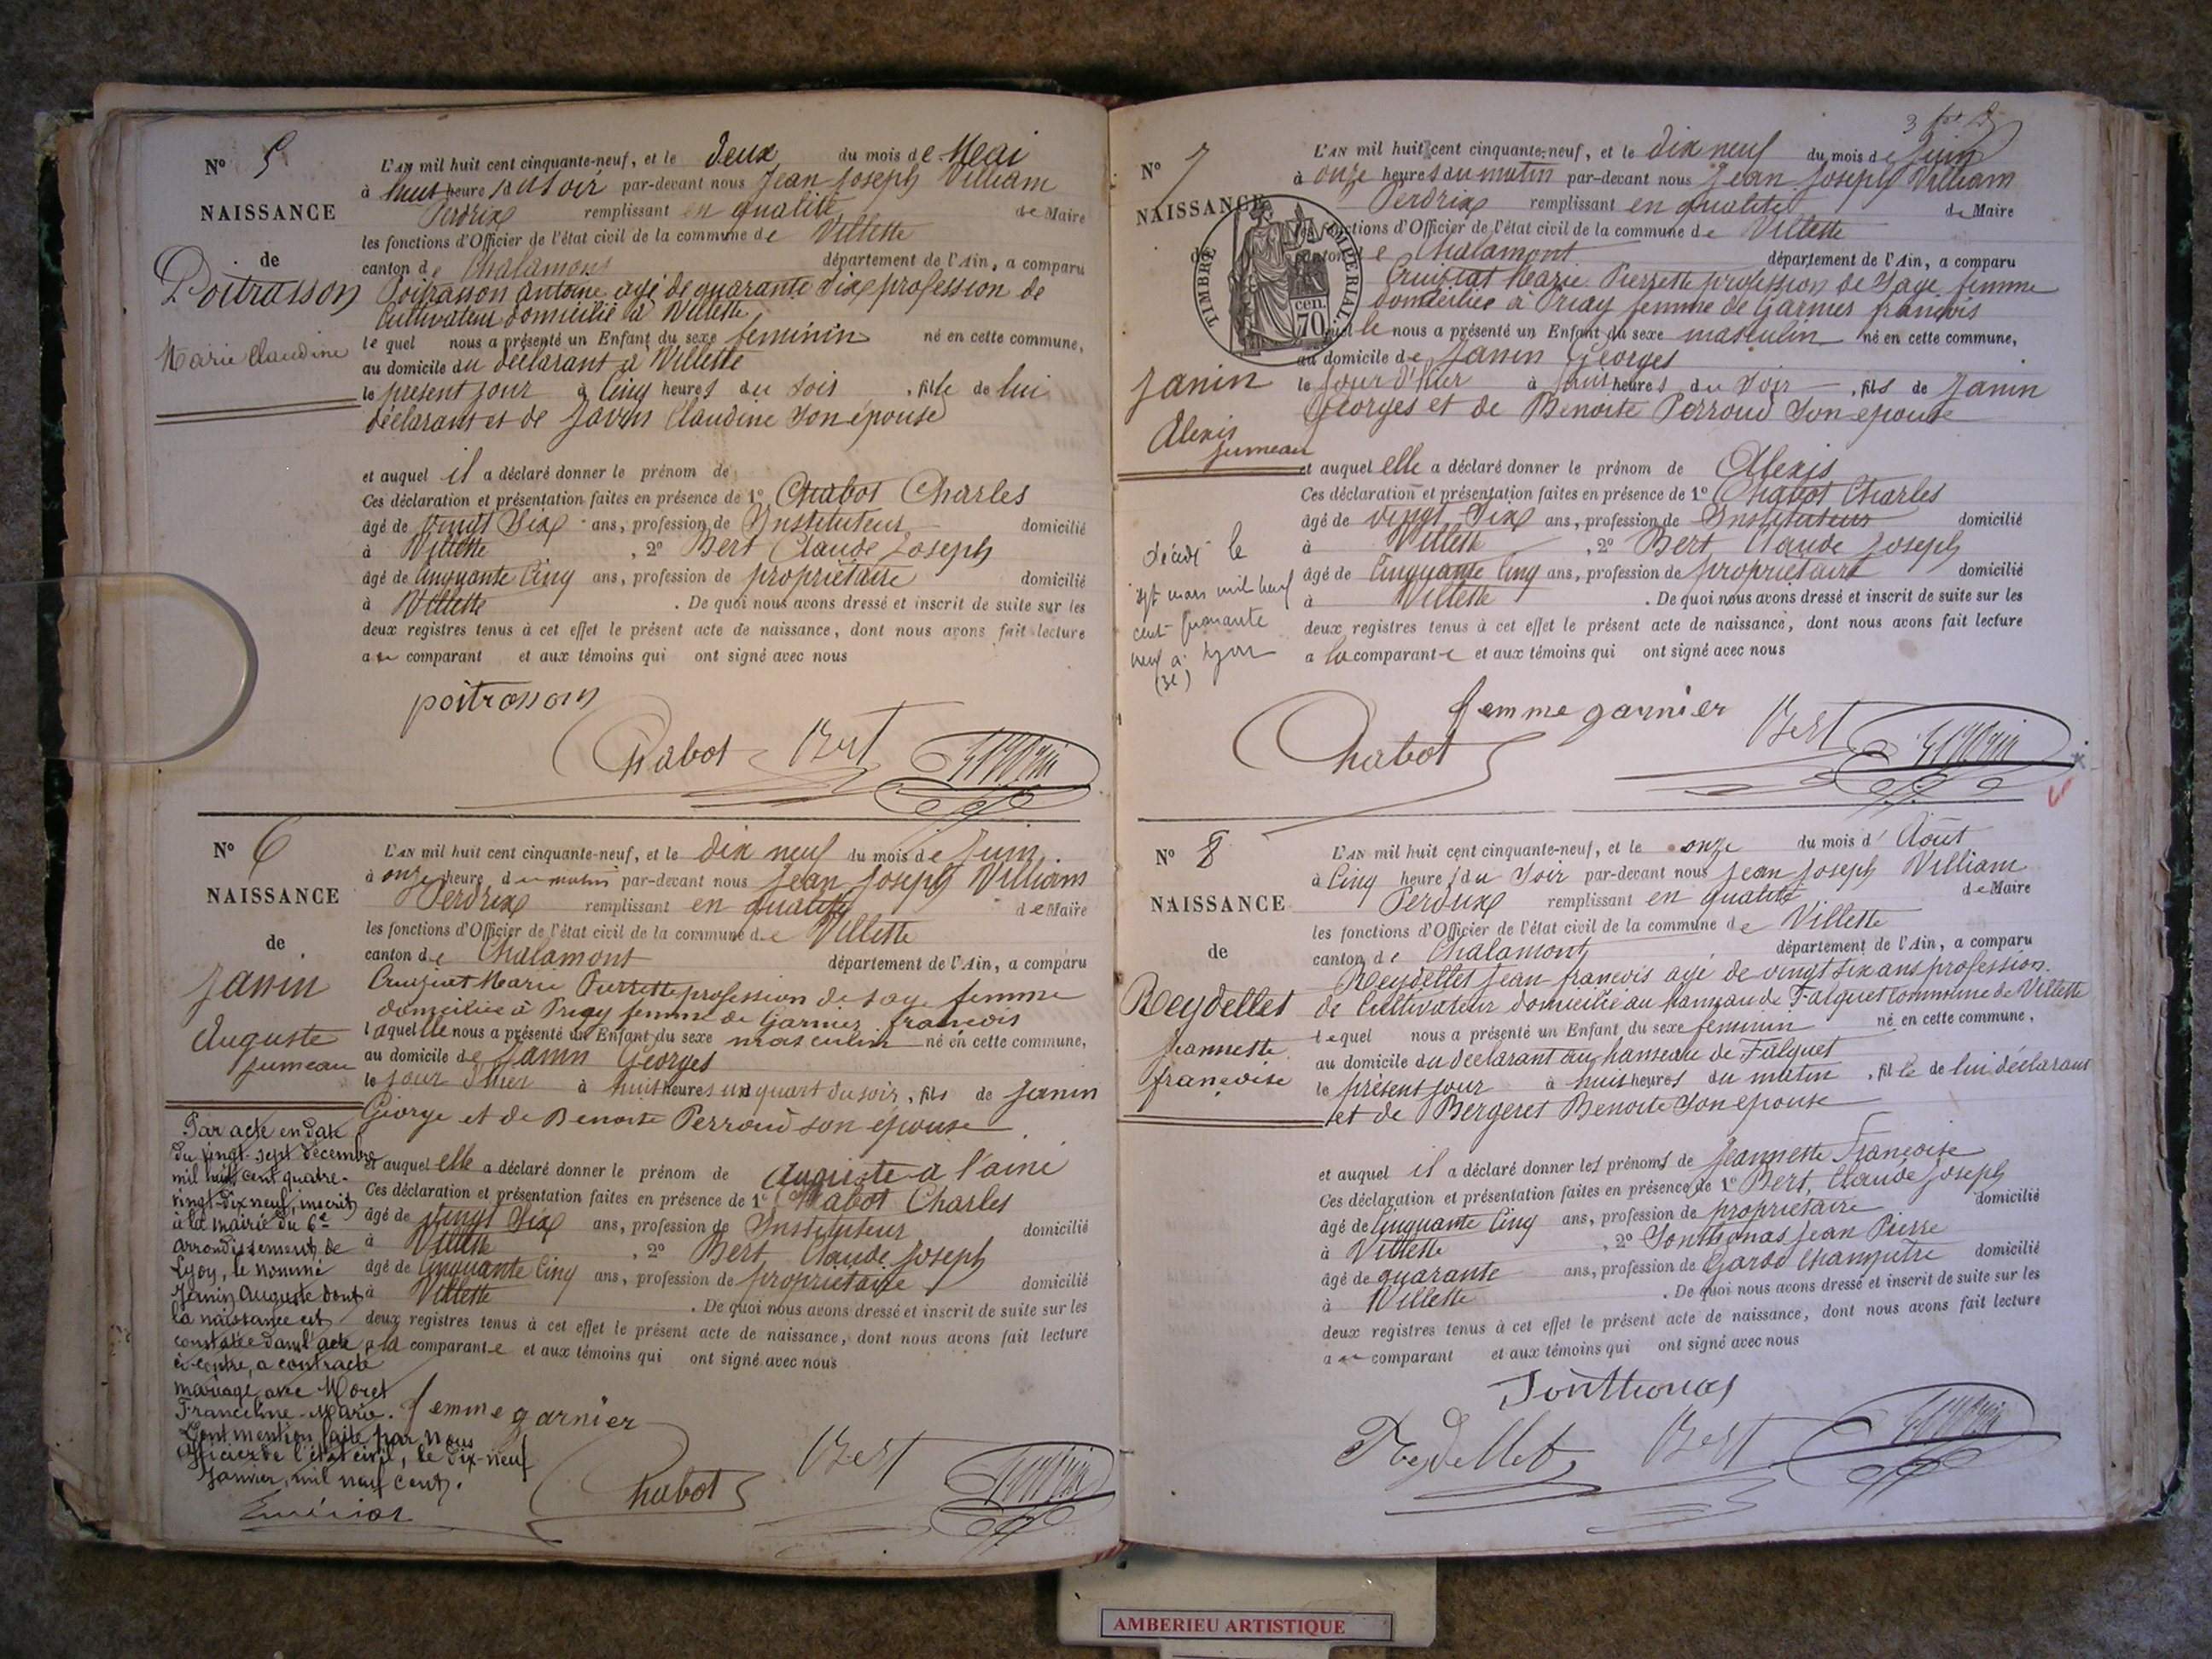 N° 5
NAISSANCE
de
Poitrasson
Marie Claudine
L'AN mil huit cent cinquante-neuf, et le deux du mois de Mai
à huit heures du soir par-devant nous Jean Joseph Villiam
Perdrix remplissant en qualité de Maire
les fonctions d'Officier de l'état civil de la commune de Villette
canton de Chalamont département de l'Ain, a comparu
Poitrasson antoine agé de quarante six profession de
Cultivateur domicilié à Villette
lequel nous a présenté un Enfant du sexe feminin né en cette commune,
au domicile du déclarant à Villette
le présent jour à Cinq heures du soir, fille de lui
déclarant et de Claudine son épouse
et auquel il a déclaré donner le prénom de
Ces déclaration et présentation faites en présence de 1° Chabot Charles
âgé de vingt six ans, profession de Instituteur domicilié
à Villette, 2° Bert Claude Joseph
âgé de Cinquante Cinq ans, profession de propriétaire domicilié
à Villette. De quoi nous avons dressé et inscrit de suite sur les
deux registres tenus à cet effet le présent acte de naissance, dont nous avons fait lecture
au comparant et aux témoins qui ont signé avec nous
poitrasson
Chabot Bert
N° 6
NAISSANCE
de
Janin
Auguste
jumeau
L'AN mil huit cent cinquante-neuf, et le dix neuf du mois de Juin.
à onze heure du matin par-devant nous Jean Joseph Villiam
Perdrix remplissant en qualité de Maire
les fonctions d'Officier de l'état civil de la commune de Villette
canton de Chalamont département de l'Ain, a comparu
Cruiziat Marie Pierrette profession de sage femme
domiciliée à Priay femme de Garnier francois
laquelle nous a présenté un Enfant du sexe masculin né en cette commune,
au domicile de Janin Georges
le jour d'hier à huit heures un quart du soir, fils de Janin
George et de Benoite Perroud son épouse
et auquel elle a déclaré donner le prénom de Auguste a l'ainé
Ces déclaration et présentation faites en présence de 1° Chabot Charles
âgé de vingt six ans, profession de Instituteur domicilié
à Villette, 2° Bert Claude Joseph
âgé de Cinquante Cinq ans, profession de propriétaire domicilié
à Villette. De quoi nous avons dressé et inscrit de suite sur les
deux registres tenus à cet effet le présent acte de naissance, dont nous avons fait lecture
a la comparante et aux témoins qui ont signé avec nous
Par acte en date
du vingt-sept décembre
mil huit cent quatre-
vingt-dix neuf, inscrit
à la mairie du 6e
arrondissement de
Lyon, le nommé
Janin Auguste dont
la naissance est
constatée dans l'acte
ci-contre, a contracté
mariage avec Moret
Franceline-Marie.
Dont mention faite par nous
officier de l'état civil, le dix-neuf
Janvier, mil neuf cent.
femme garnier
Chabot Bert
3
N° 7
NAISSANCE
de
TIMBRE IMPERIAL
70 cen.
Janin
Alexis
jumeau
L'AN mil huit cent cinquante-neuf, et le dix neuf du mois de Juin
à onze heures du matin par-devant nous Jean Joseph Villiam
Perdrix remplissant en qualité de Maire
les fonctions d'Officier de l'état civil de la commune de Villette
canton de Chalamont département de l'Ain, a comparu
Cruiziat Marie Pierrette profession de sage femme
domiciliée à Priay femme de Garnier francois
laquelle nous a présenté un Enfant du sexe masculin né en cette commune,
au domicile de Janin Georges
le jour d'hier à huit heures du soir, fils de Janin
Georges et de Benoite Perroud son epouse
et auquel elle a déclaré donner le prénom de Alexis
Ces déclaration et présentation faites en présence de 1° Chabot Charles
âgé de vingt six ans, profession de Instituteur domicilié
à Villette, 2° Bert Claude Joseph
âgé de Cinquante Cinq ans, profession de propriétaire domicilié
à Villette. De quoi nous avons dressé et inscrit de suite sur les
deux registres tenus à cet effet le présent acte de naissance, dont nous avons fait lecture
a la comparante et aux témoins qui ont signé avec nous
décédé le
sept mars mil neuf
cent quarante
neuf à Lyon
(3e)
femme garnier
Chabot Bert
N° 8
NAISSANCE
de
Reydellet
Jeannette
françoise
L'AN mil huit cent cinquante-neuf, et le onze du mois d'Août
à Cinq heures du soir par-devant nous Jean Joseph Villiam
Perdrix remplissant en qualité de Maire
les fonctions d'Officier de l'état civil de la commune de Villette
canton de Chalamont département de l'Ain, a comparu
Reydellet Jean francois agé de vingt six ans profession
de Cultivateur domicilié au hameau de Falquet commune de Villette
lequel nous a présenté un Enfant du sexe feminin né en cette commune,
au domicile du déclarant au hameau de Falquet
le présent jour à huit heures du matin, fille de lui déclarant
et de Bergeret Benoite son epouse
et auquel il a déclaré donner les prénoms de Jeannette Françoise
Ces déclaration et présentation faites en présence de 1° Bert, Claude Joseph
âgé de Cinquante Cinq ans, profession de propriétaire domicilié
à Villette, 2° Sonthonas Jean Pierre
âgé de quarante ans, profession de Garde Champêtre domicilié
à Villette. De quoi nous avons dressé et inscrit de suite sur les
deux registres tenus à cet effet le présent acte de naissance, dont nous avons fait lecture
au comparant et aux témoins qui ont signé avec nous
Sonthonas
Reydellet Bert
AMBERIEU ARTISTIQUE